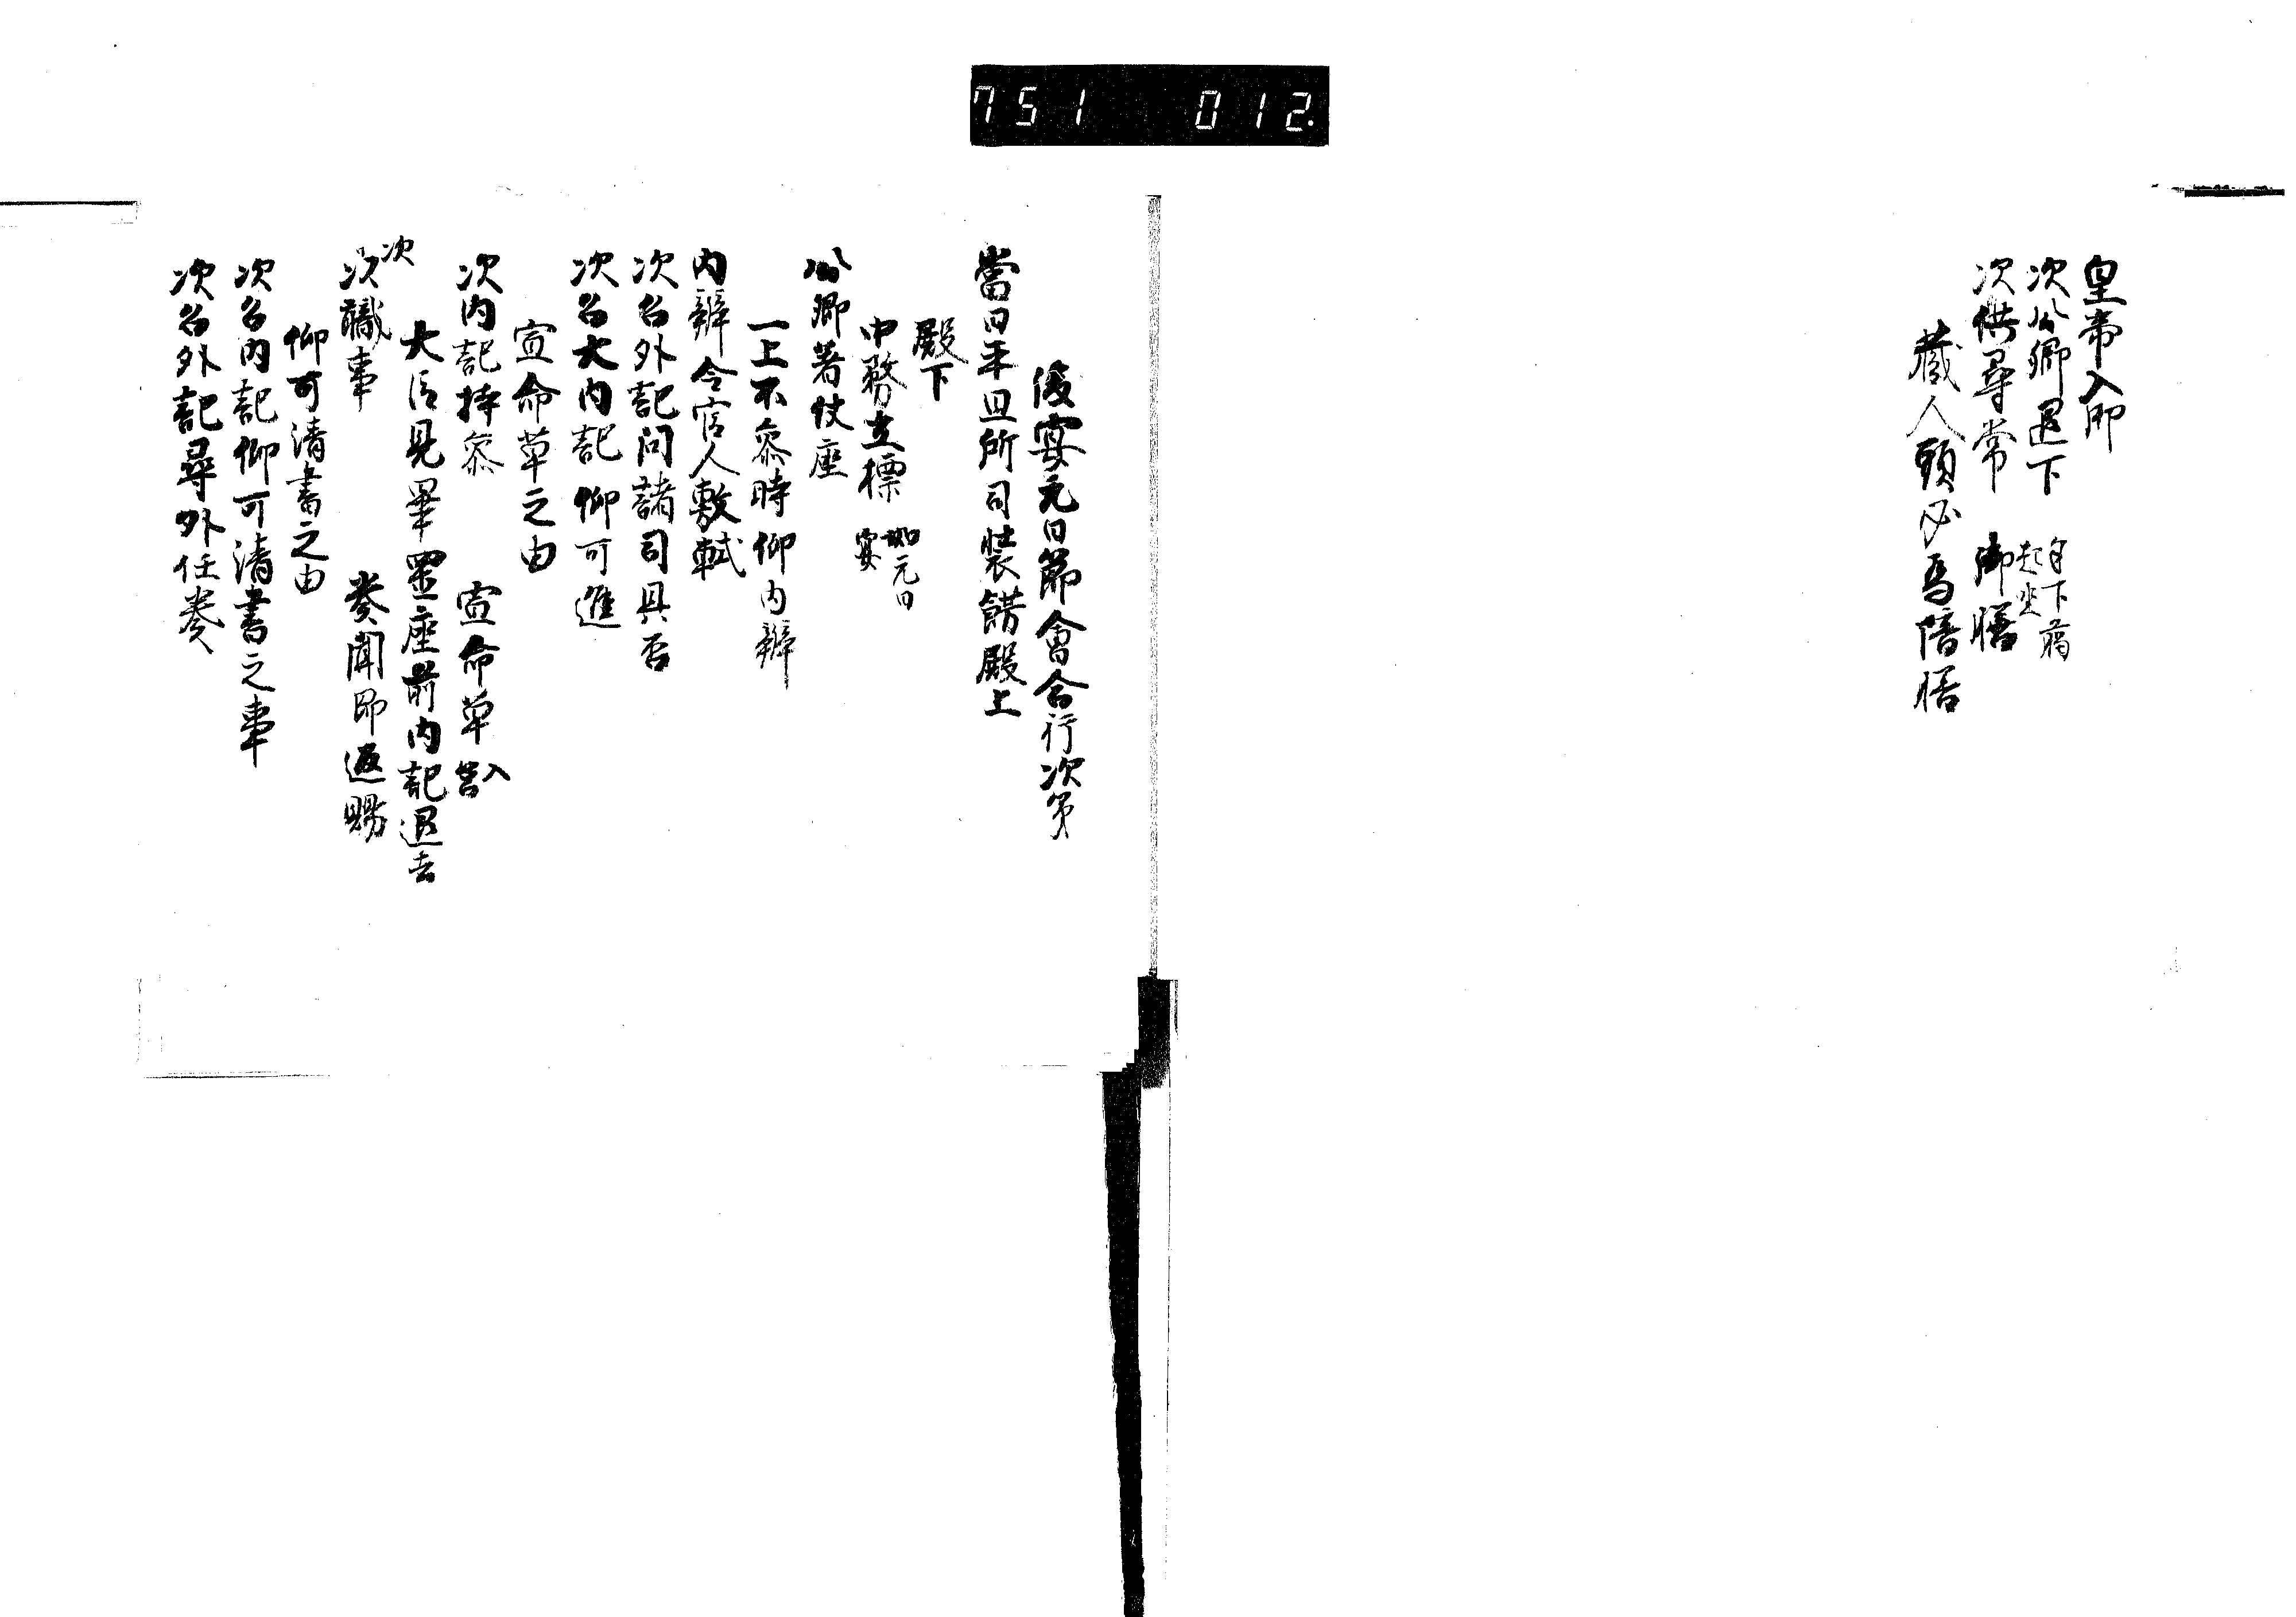 751 012.
皇帝入御
次公卿退下 自下﨟起座
次供尋常 御膳
蔵人頭必為陪膳
後宴元日節會合行次第
當日平旦所司装餝殿上
殿下
中務立標 如元日宴
公卿著仗座
一上不参時仰内辨
内辨令官人敷軾
次召外記問諸司具否
次召大内記仰可進
宣命草之由
次内記持参 宣命草 入筥
大臣見畢置座前内記退去
次職事 奏聞即返賜
次
仰可清書之由
次召内記仰可清書之事
次召外記尋外任奏